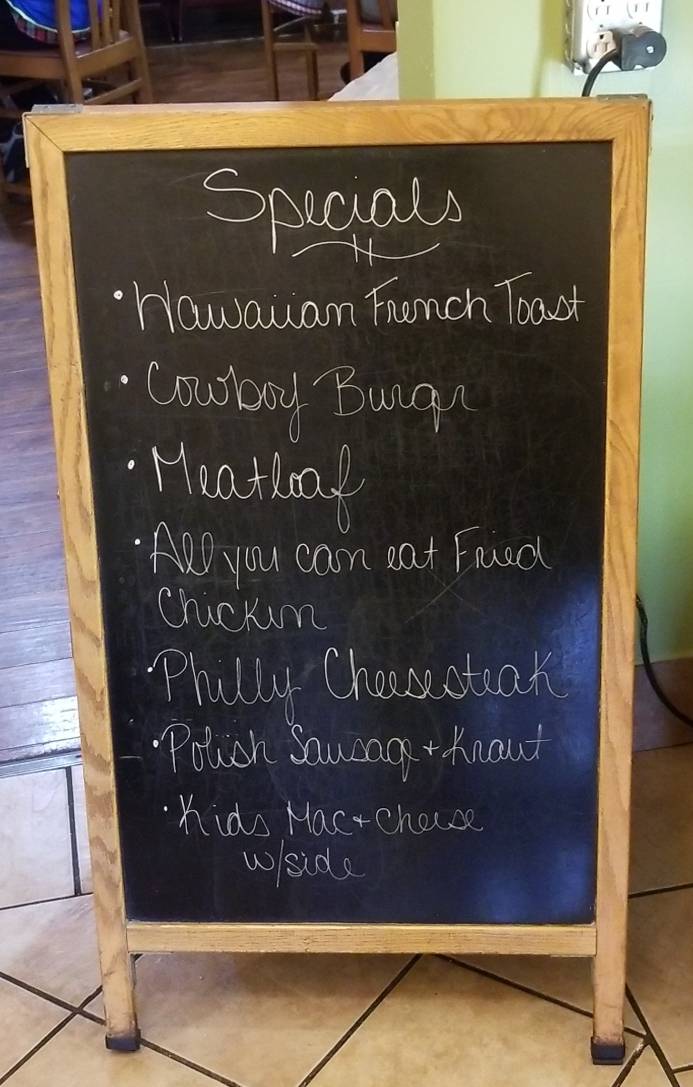 Specials
• Hawaiian French Toast
• Cowboy Burger
• Meatloaf
• All you can eat Fried
Chicken
• Philly Cheesesteak
• Polish Sausage + Kraut
• Kids Mac + Cheese
w/side